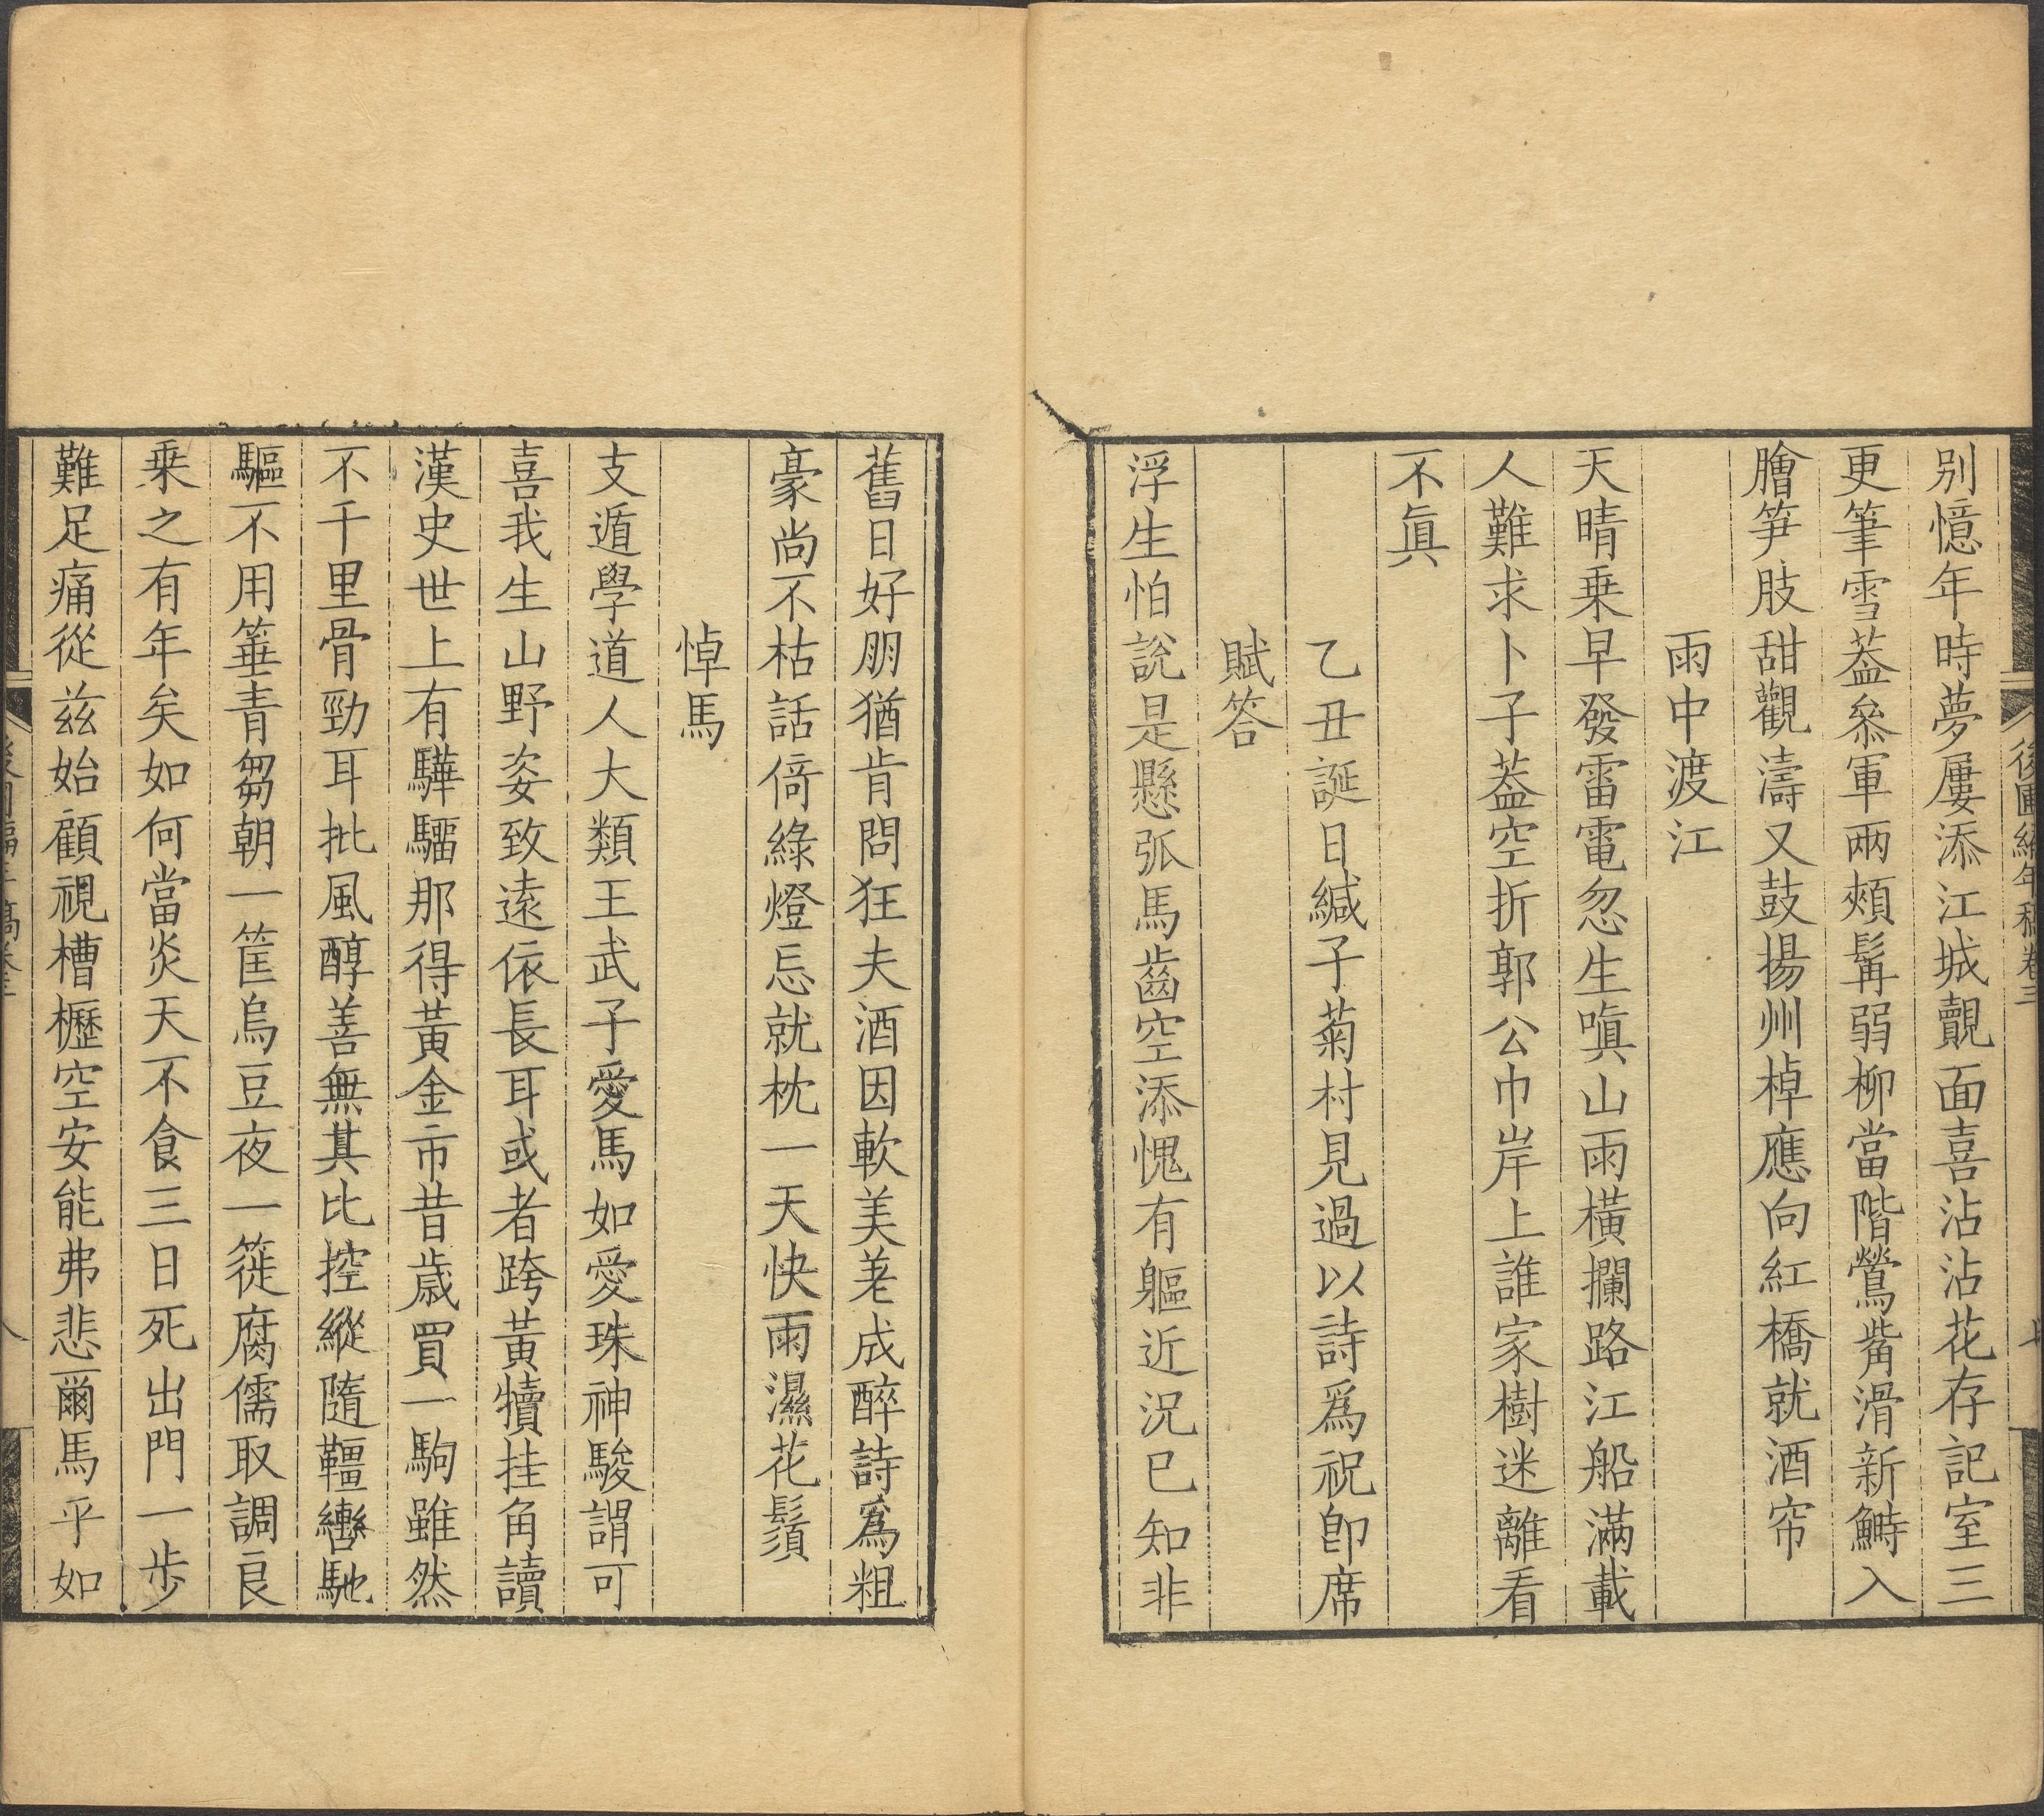 後圃編年稿卷三
七
别憶年時夢屢添江城覿面喜沾沾花存記室三
更筆雪葢叅軍兩頰髯弱柳當階鶯觜滑新鰣入
膾笋肢甜觀濤又鼓揚州棹應向紅橋就酒帘
雨中渡江
天晴乗早發雷電忽生嗔山雨橫攔路江船滿載
人難求卜子葢空折郭公巾岸上誰家樹迷離看
不眞
乙丑誕日緘子菊村見過以詩爲祝卽席
賦答
浮生怕說是懸弧馬齒空添愧有軀近況已知非
舊日好朋猶肯問狂夫酒因軟美茖成醉詩爲粗
豪尚不枯話倚綠燈忘就枕一天快雨濕花鬚
悼馬
支遁學道人大類王武子愛馬如愛珠神駿謂可
喜我生山野姿致遠依長耳或者跨黃犢挂角讀
漢史世上有驊騮那得黃金市昔歲買一駒雖然
不千里骨勁耳批風醇善無其比控縱隨韁轡馳
驅不用箠青芻朝一筐烏豆夜一簁腐儒取調良
乗之有年矣如何當炎天不食三日死出門一步
難足痛從茲始顧視槽櫪空安能弗悲爾馬乎如
後圃編年稿卷三
八